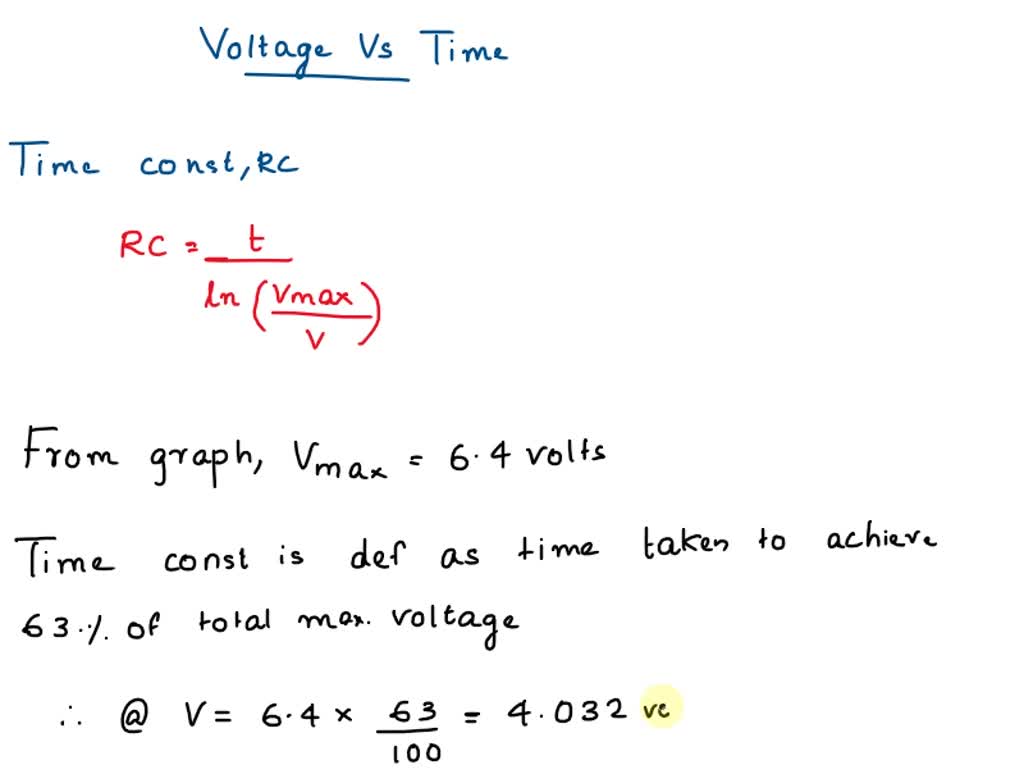 Voltage Vs Time
Time const, RC
RC = t / ln (Vmax / V)
From graph, Vmax = 6.4 volts
Time const is def as time taken to achieve
63 % of total max. voltage
∴ @ V = 6.4 × 63 / 100 = 4.032 vo